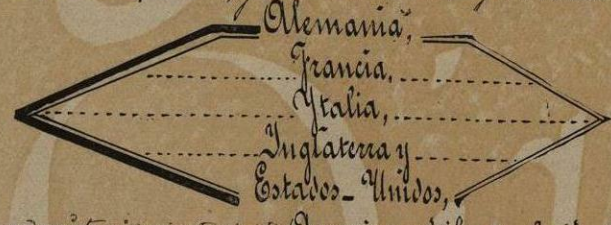 Alemania,
Francia,
Ytalia,
Inglaterra y
Estados-Unidos,